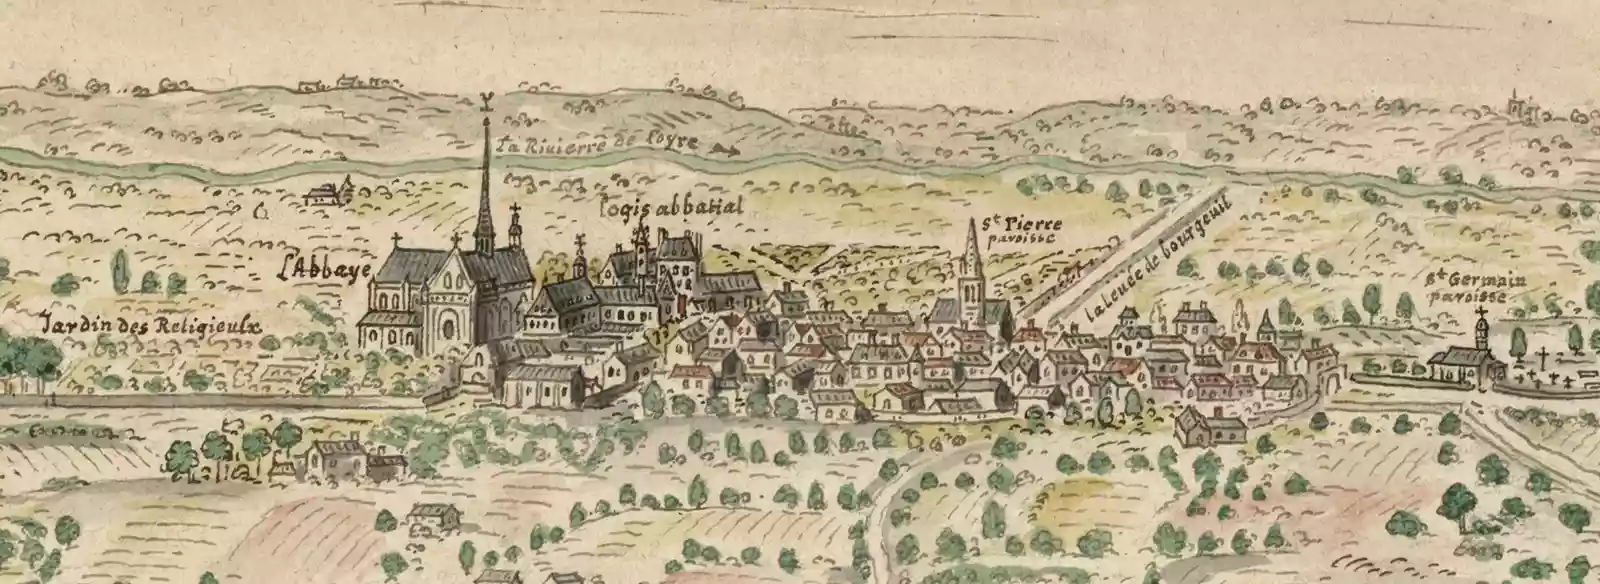 La Riuierre de loyre
logis abbatial
l'Abbaye
Jardin des Religieulx
St Pierre
paroisse
la leuée de bourgeuil
St Germain
paroisse